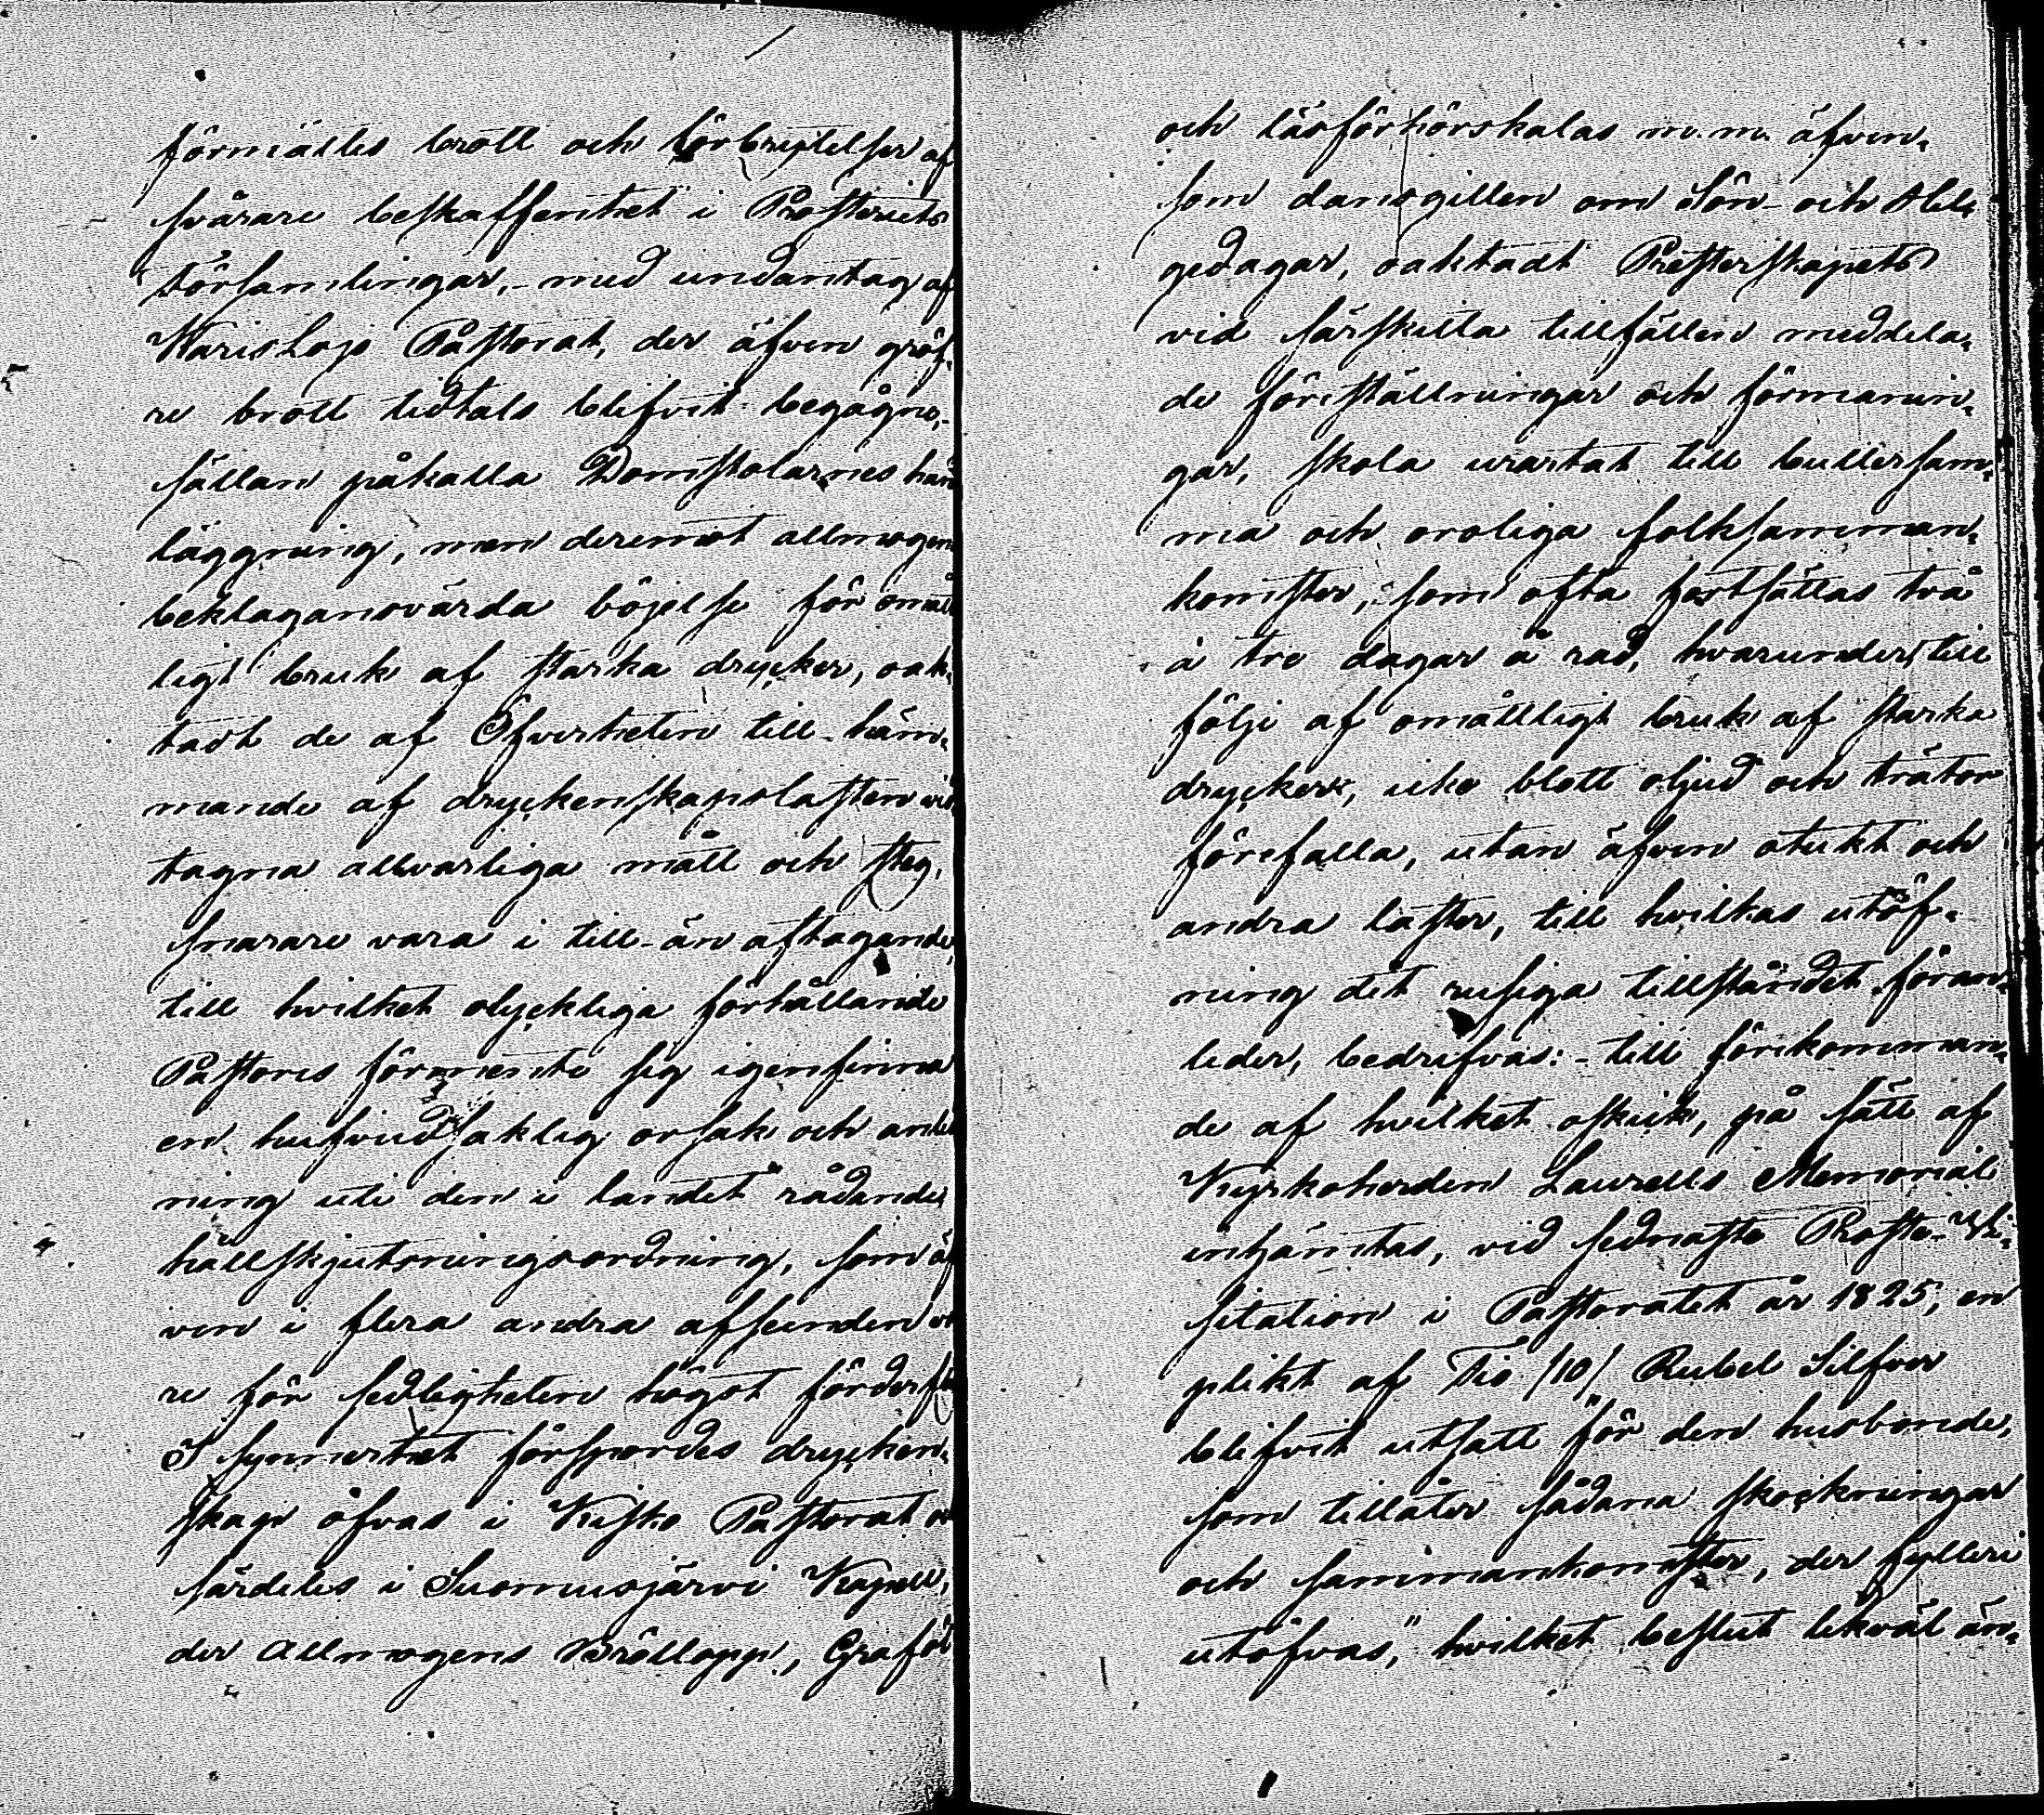 förmältes brott och förbrytelser af
svårare beskaffenhet i Prosteriets
Församlingar, med undantag af
Karislojo Pastorat, der äfven gröf-
re brott tidtals blifvit begågne,
sällan påkalla Domstolarnes hand
läggning, men deremot allmogens
beklagansvärda böjelse för omått
ligt bruk af starka drycker, oak-
tadt de af Öfverheten till häm-
mande af dryckenskapslasten vid
tagna allvarliga mått och steg,
snarare vara i till- än aftagande,
till hvilket olyckliga förhållande
Pastores förmente sig igenfinna
en hufvudsaklig orsak och anled
ning uti den i landet rådande
hållskjutsningsordning, som äf
ven i flera andra afseenden vo
re för sedligheten högst förderf
I synnerhet förspordes drycken-
skap öfvas i Kisko Pastorat och
särdeles i Suomusjärvi Kapell,
der Allmogens Bröllopp, Graföl
och läsförhörskalas m.m. äfven-
som dansgillen om Sön- och Hel-
gedagar, oaktadt Presterskapets
vid särskilta tillfällen meddela-
de föreställningar och förmanin-
gar, skola urartat till bullersam-
ma och oroliga folksamman-
komster, som ofta fortsättas två
à tre dagar å rad, hvarunder, till
följe af omåttligt bruk af starka
drycker, icke blott oljud och trätor
förefalla, utan äfven otukt och
andra laster, till hvilkas utöf-
ning det rusiga tillståndet föran-
leder, bedrifvas: - till förekomman-
de af hvilket oskick, på sätt af
Kyrkoherden Laurells Memorial
inhämtas, vid sednaste Prosta-Vi-
sitation i Pastoratet år 1825, en
plikt af Tio /10/ Rubel Silfver
blifvit utsatt "för den husbonde,
som tillåter sådana skockningar
och sammankomster, der fylleri
utöfvas," hvilket beslut likväl än-